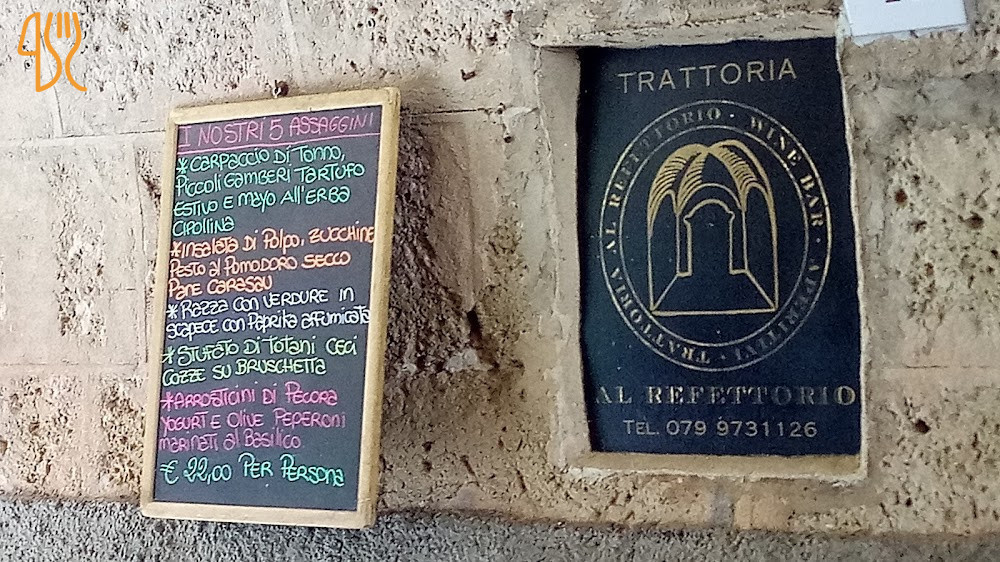 I NOSTRI 5 ASSAGGINI
*CARPACCIO DI TONNO,
PICCOLI GAMBERI TARTUFO
ESTIVO E MAYO ALL'ERBA
CIPOLLINA
*INSALATA DI POLPO, ZUCCHINE
PESTO AL POMODORO SECCO
PANE CARASAU
*RAZZA CON VERDURE IN
SCAPECE CON PAPRIKA AFFUMICATA
*STUFATO DI TOTANI CECI
COZZE SU BRUSCHETTA
*ARROSTICINI DI PECORA
YOGURT E OLIVE PEPERONI
MARINATI AL BASILICO
€ 22,00 PER PERSONA
TRATTORIA
TRATTORIA AL REFETTORIO · WINE BAR · APERITIVI ·
AL REFETTORIO
TEL. 079 9731126